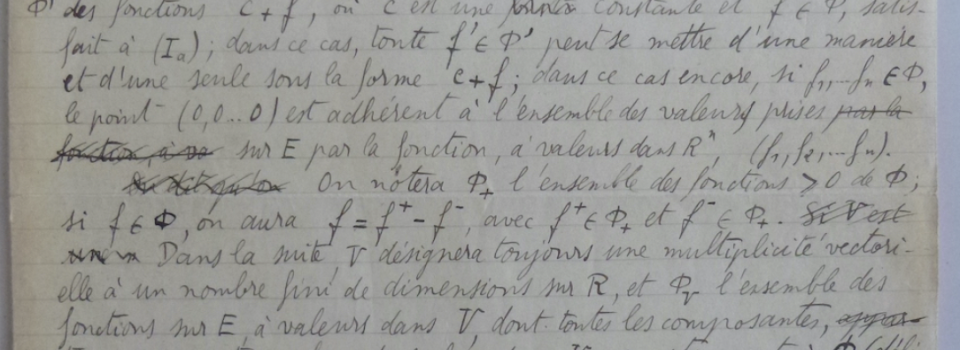 Φ' des fonctions c + f, où c est une constante et f ∈ Φ, satis-
fait à (I_a); dans ce cas, toute f' ∈ Φ' peut se mettre d'une manière
et d'une seule sous la forme c + f; dans ce cas encore, si f₁,...fₙ ∈ Φ,
le point (0,0...0) est adhérent à l'ensemble des valeurs prises par la
fonction, à va sur E par la fonction, à valeurs dans Rⁿ, (f₁,f₂,...fₙ).
On notera Φ₊ l'ensemble des fonctions ⩾ 0 de Φ;
si f ∈ Φ, on aura f = f⁺ - f⁻, avec f⁺ ∈ Φ₊ et f⁻ ∈ Φ₊. Si V est
Dans la suite, V désignera toujours une multiplicité vectori-
elle à un nombre fini de dimensions sur R, et Φ_V l'ensemble des
fonctions sur E, à valeurs dans V, dont toutes les composantes,